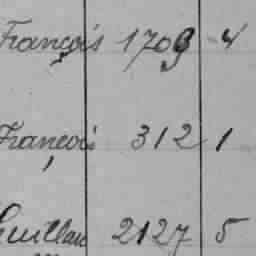 François 1709 4
François 312 1
Guillau 2127 5